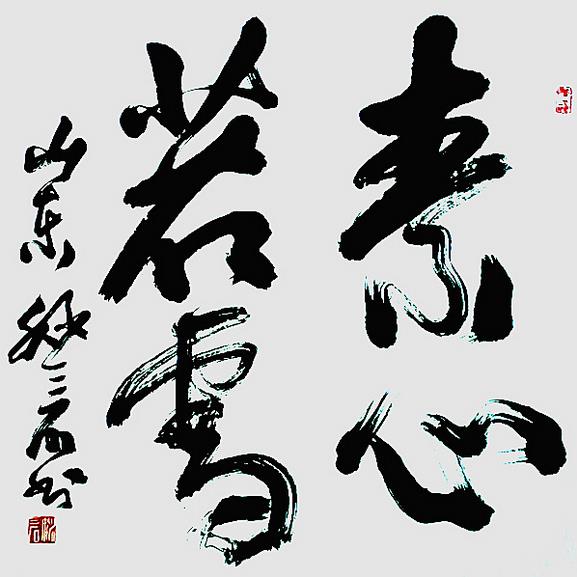 素心
若雪
山东孙三石书